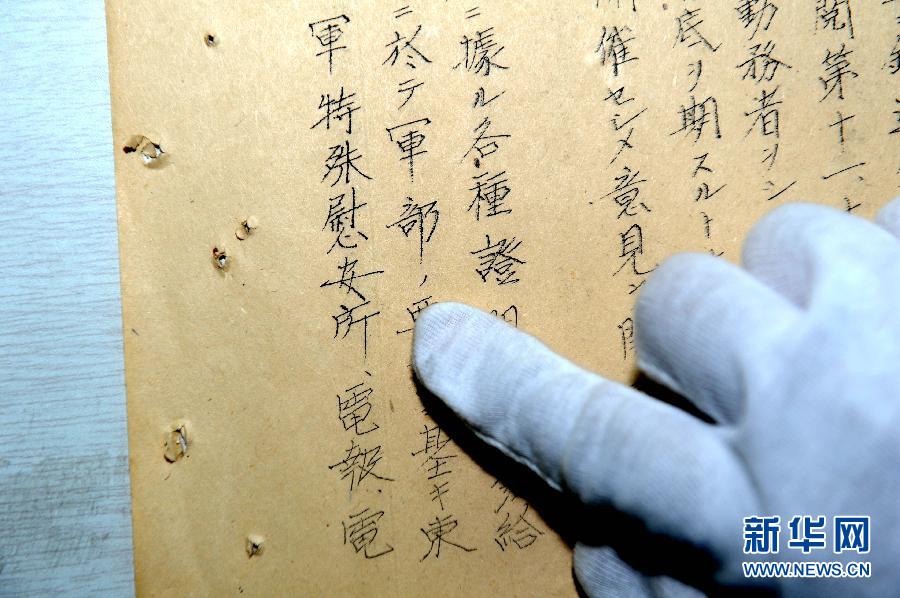 勤務者ヲシ
底ヲ期スルト
開催セシメ意見ヲ
ニ據ル各種證
給
ニ於テ軍部ノ要
基キ東
軍特殊慰安所、電報、電
新华网
WWW.NEWS.CN